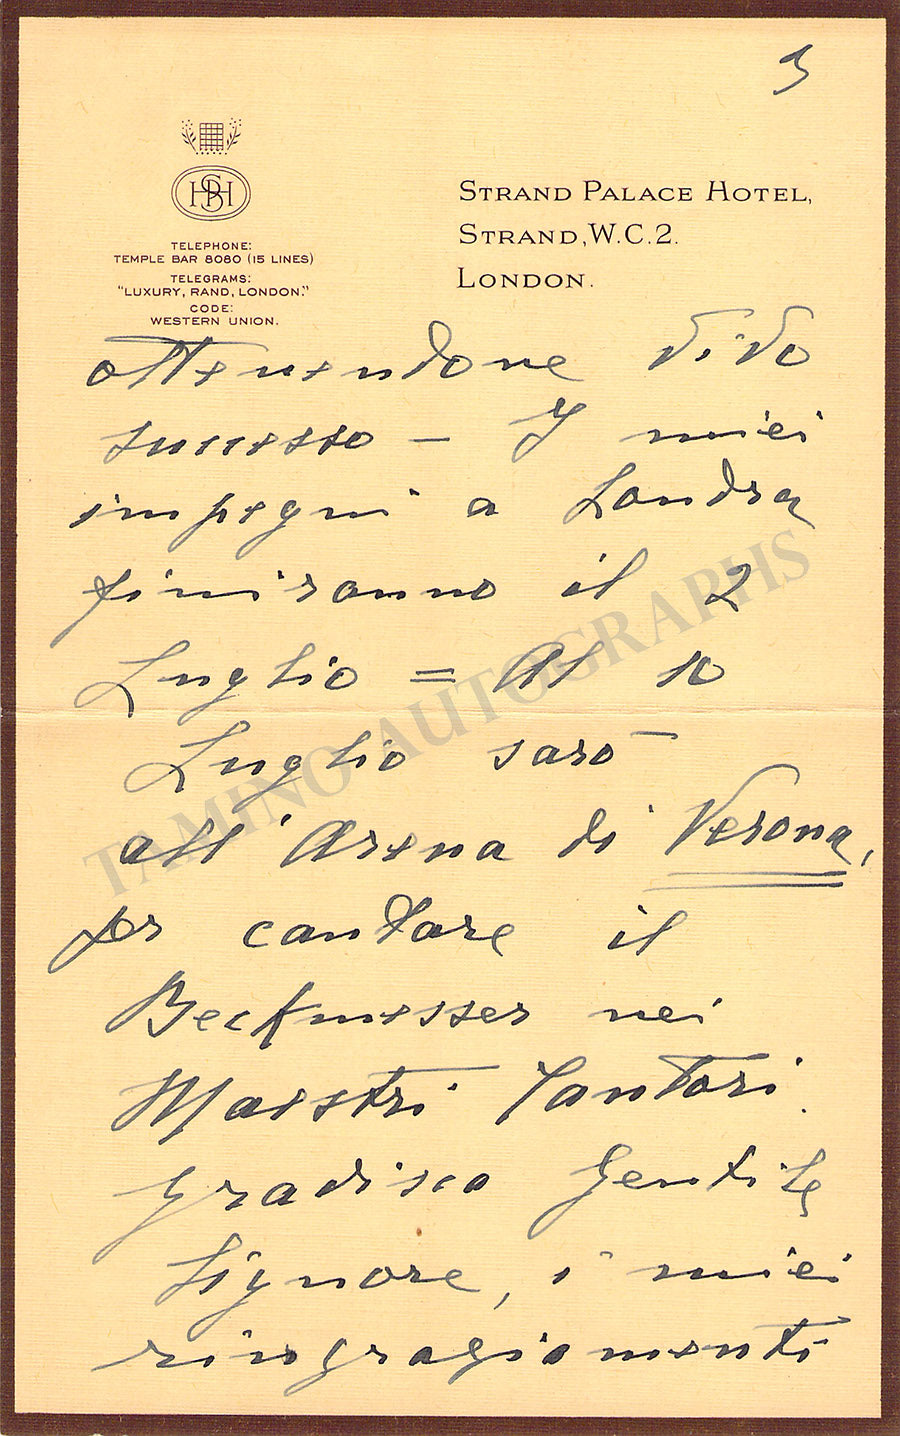 3
HSPH
STRAND PALACE HOTEL,
STRAND, W.C.2.
LONDON.
TELEPHONE:
TEMPLE BAR 8080 (15 LINES)
TELEGRAMS:
"LUXURY, RAND, LONDON."
CODE:
WESTERN UNION.
ottenendone vivo
successo – I miei
impegni a Londra
finiranno il 2
Luglio = Al 10
Luglio sarò
all'Arena di Verona,
per cantare il
Beckmesser nei
Maestri Cantori.
Gradisca Gentile
Signore, i miei
ringraziamenti
TAMINO AUTOGRAPHS